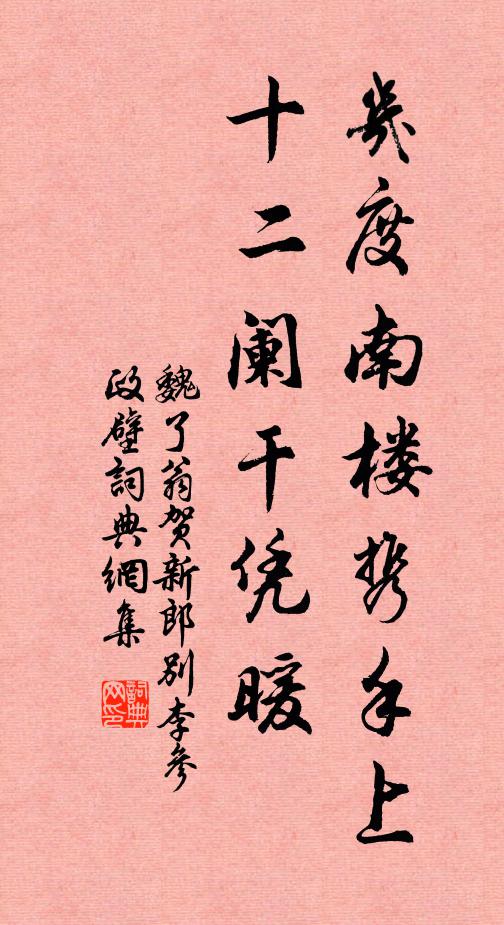 几度南楼携手上
十二阑干凭暖
魏了翁贺新郎别李参
政壁詞典網集
詞典网印